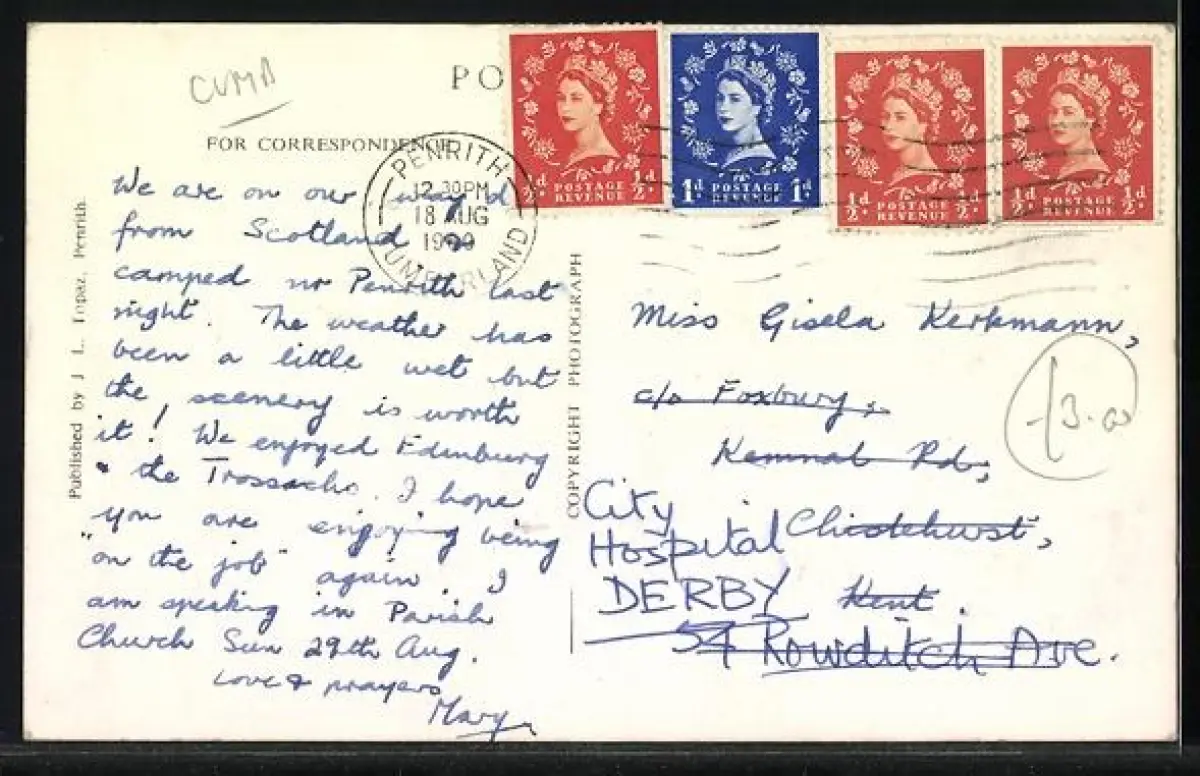 CUMB
PO
FOR CORRESPONDENCE
PENRITH
12.30PM
18 AUG
CUMBERLAND
½d POSTAGE REVENUE ½d.
1d POSTAGE REVENUE 1d.
½d. POSTAGE REVENUE ½d.
½d. POSTAGE REVENUE ½d.
We are on our way
from Scotland &
camped nr Penrith last
night. The weather has
been a little wet but
the scenery is worth
it! We enjoyed Edinburg
& the Trossachs. I hope
you are enjoying being
"on the job" again. I
am speaking in Parish
Church Sun 29th Aug.
Love & prayers
Mary
Published by J. L. Topaz, Penrith.
COPYRIGHT PHOTOGRAPH
Miss Gisela Kerkmann,
c/o Foxbury,
Kemnal Rd,
Chislehurst,
Kent.
City
Hospital
DERBY
54 Rowditch Ave.
£3.00